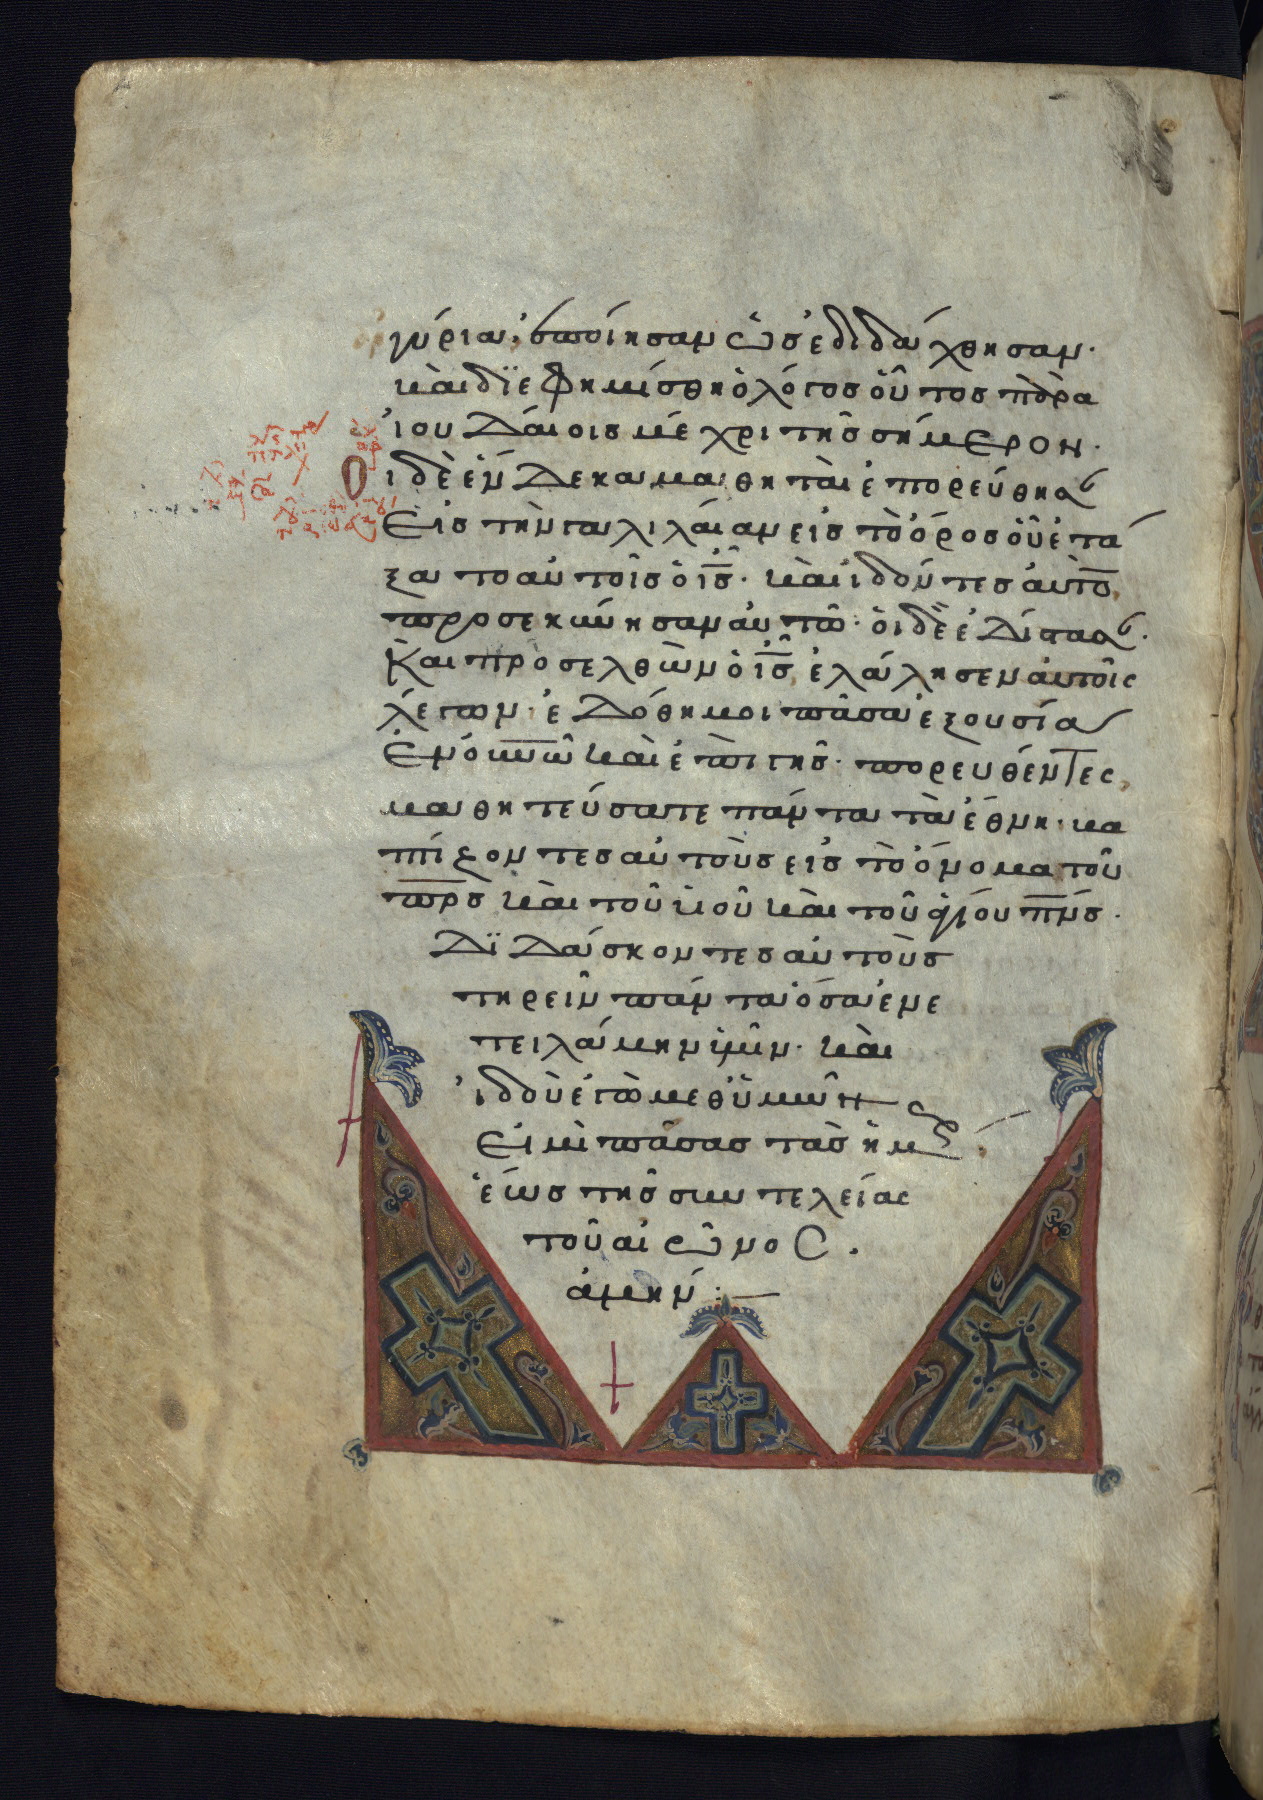 γύρια· ἐποίησαν ὡσ ἐδιδάχθησαν·
καὶ διεφημίσθη ὁ λόγοσ οὗτοσ παρὰ
ἰουδαίοισ μέχρι τῆσ σήμερον·
Οἱ δὲ ἕνδεκα μαθηταὶ ἐπορεύθησα
εἰσ τὴν γαλιλαίαν εἰσ τὸ ὄροσ οὗ ἐτά
ξατο αὐτοῖσ ὁ ι̅σ̅· καὶ ἰδόντεσ αὐτὸ̅
προσεκύνησαν αὐτῶ· οἱ δὲ ἐδίστασα·
Καὶ προσελθὼν ὁ ι̅σ̅ ἐλάλησεν αὐτοῖς
λέγων· ἐδόθη μοι πᾶσα ἐξουσία
ἐν ο̅υ̅ν̅ω̅ καὶ ἐπὶ γῆσ· πορευθέντες
μαθητεύσατε πάντα τὰ ἔθνη· βα
πτίζοντεσ αὐτοὺσ εἰσ τὸ ὄνομα τοῦ
π̅ρ̅σ̅ καὶ τοῦ υἱοῦ καὶ τοῦ ἁγίου π̅ν̅σ̅·
Διδάσκοντεσ αὐτοὺσ
τηρεῖν πάντα ὅσα ἐνε
τειλάμην ὑμῖν· καὶ
ἰδοὺ ἐγὼ μεθ' ὑμῶν
εἰμὶ πάσασ τὰσ ἡμ
ἕωσ τῆσ συντελείας
τοῦ αἰῶνος.
ἀμήν:—